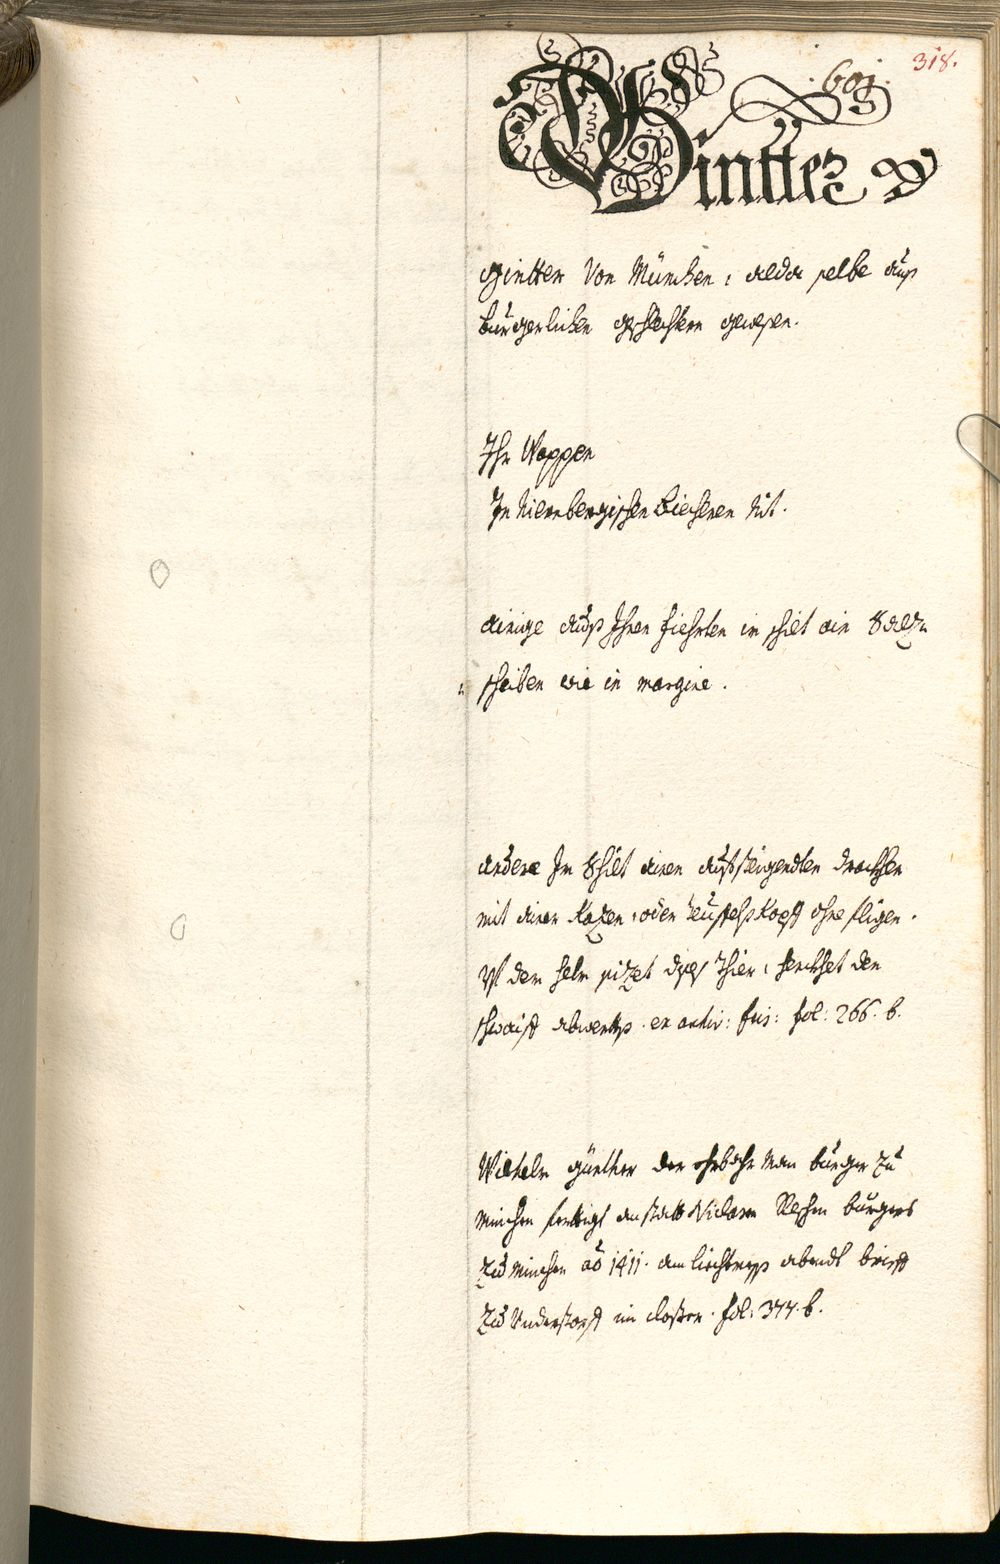 601.
318.
Ginttez
Gintter Von München, alda selbs auß
burgerlichen geschlechtern gewesen.
Ihr Wappen
In Niernbergischen Biechern Nit.
ainige auß Ihnen fiehrten im schilt ein Salz
scheiben wie in margine.
andere Im Schilt ainen aufsteigendten drachen
mit ainem Kazen, oder teüfels Kopff ohne fligen.
Vf dem helm sizet dises Thier, henckhet den
schwaiff abwerts. ex archiv: fris: fol: 266. b.
Wilhelm günther der ehrbahr Man burger zu
Minchen fertigt anstatt Niclasen burgers
zu Minchen ao 1411. am liechtmess abendt brieff
zu Understorff im closter. fol: 377. b.